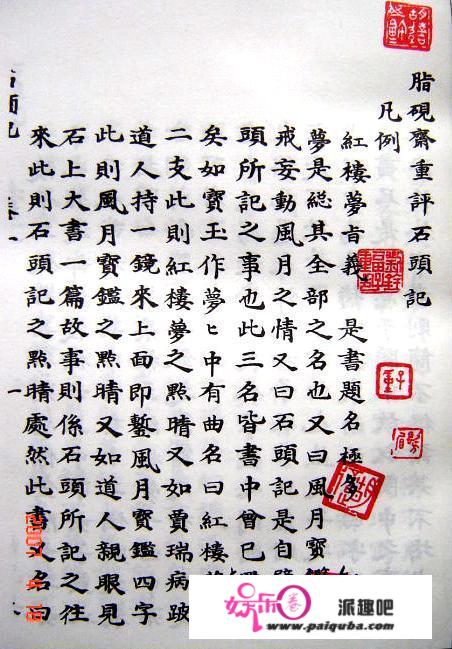 脂硯齋重評石頭記
凡例
紅樓夢旨義 是書題名極多
夢是総其全部之名也又曰風月寶
戒妄動風月之情又曰石頭記是自譬
頭所記之事也此三名皆書中曾已
矣如寶玉作夢ヒ中有曲名曰紅樓
二支此則紅樓夢之點晴又如賈瑞病跛
道人持一鏡來上面即鏨風月寶鑑四字
此則風月寶鑑之點晴又如道人親眼見
石上大書一篇故事則係石頭所記之往
來此則石頭記之點晴處然此書又名曰
娱币圈 派趣吧
www.paiquba.com